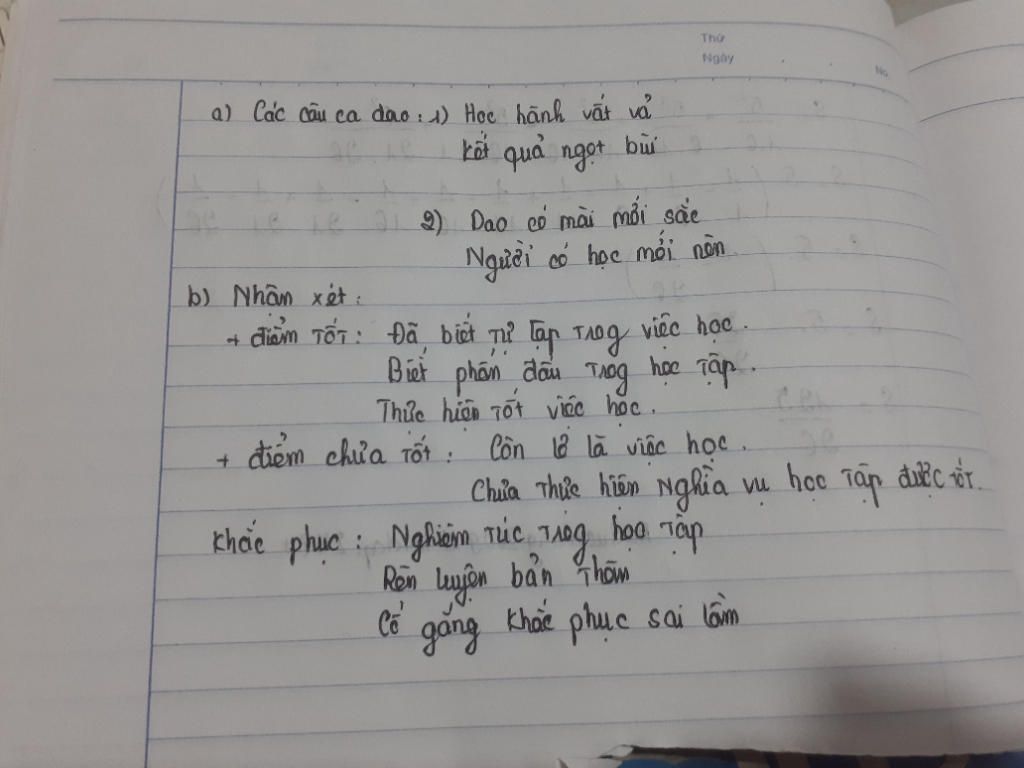 Thứ
Ngày
No.
a) Các câu ca dao: 1) Học hành vất vả
kết quả ngọt bùi
2) Dao có mài mới sắc
Người có học mới nên
b) Nhận xét:
+ điểm tốt: Đã biết tự lập trog việc học.
Biết phấn đấu trog học tập.
Thực hiện tốt việc học.
+ điểm chưa tốt: Còn lơ là việc học.
Chưa thực hiện nghĩa vụ học tập được tốt.
khắc phục: Nghiêm túc trog học tập
Rèn luyện bản thân
Cố gắng khắc phục sai lầm